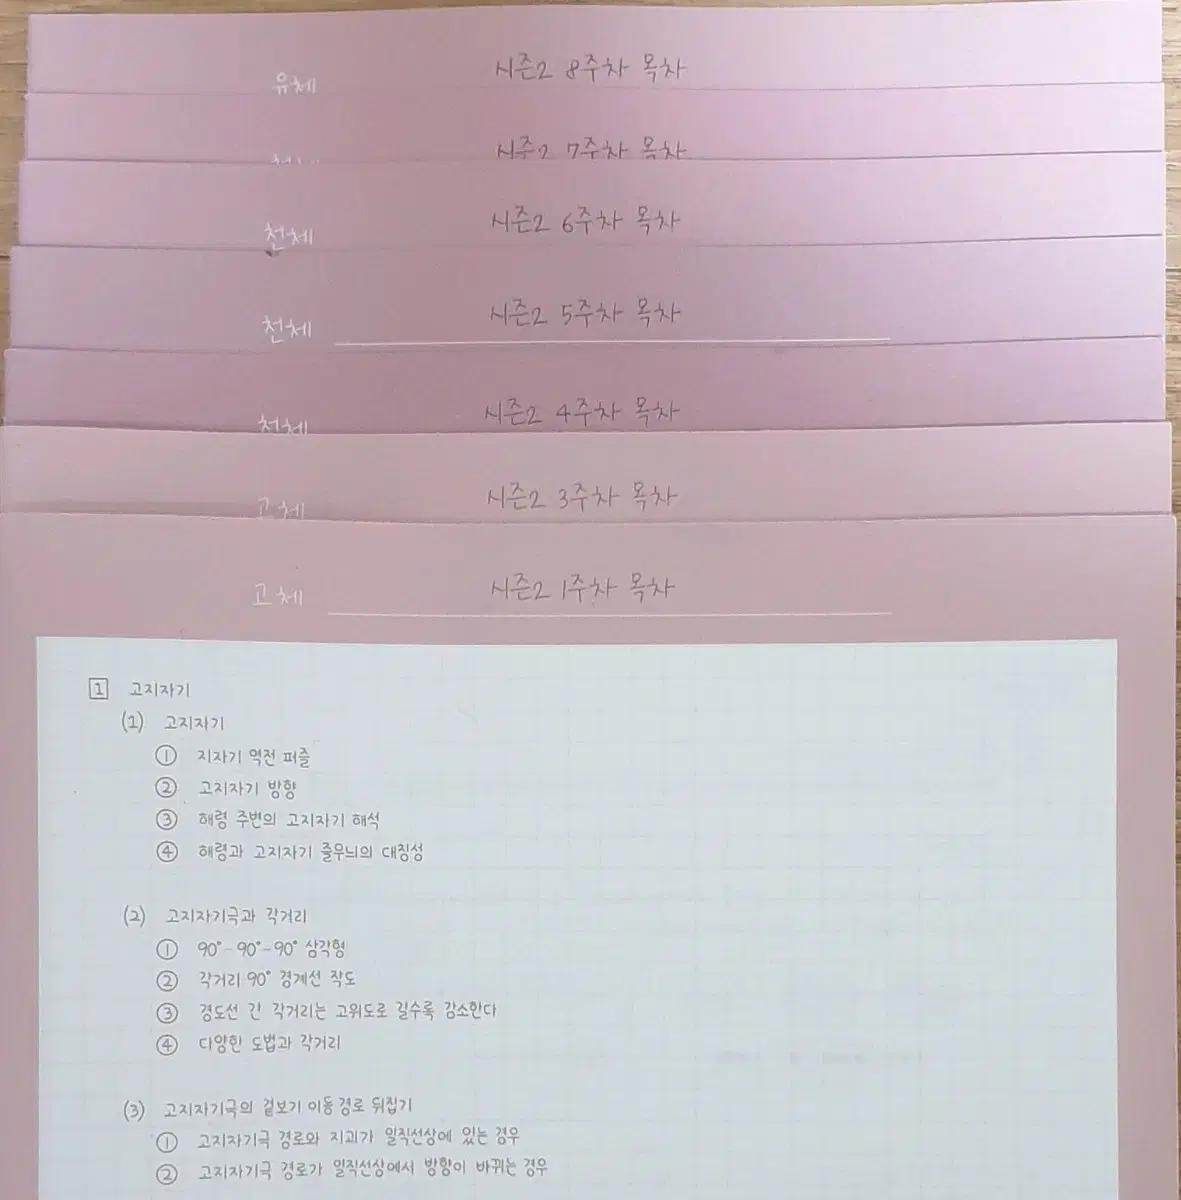 유체 시즌2 8주차 목차
시즌2 7주차 목차
천체 시즌2 6주차 목차
천체 시즌2 5주차 목차
천체 시즌2 4주차 목차
고체 시즌2 3주차 목차
고체 시즌2 1주차 목차
1 고지자기
(1) 고지자기
① 지자기 역전 퍼즐
② 고지자기 방향
③ 해령 주변의 고지자기 해석
④ 해령과 고지자기 줄무늬의 대칭성
(2) 고지자기극과 각거리
① 90°-90°-90° 삼각형
② 각거리 90° 경계선 작도
③ 경도선 간 각거리는 고위도로 갈수록 감소한다
④ 다양한 도법과 각거리
(3) 고지자기극의 겉보기 이동 경로 뒤집기
① 고지자기극 경로와 지괴가 일직선상에 있는 경우
② 고지자기극 경로가 일직선상에서 방향이 바뀌는 경우